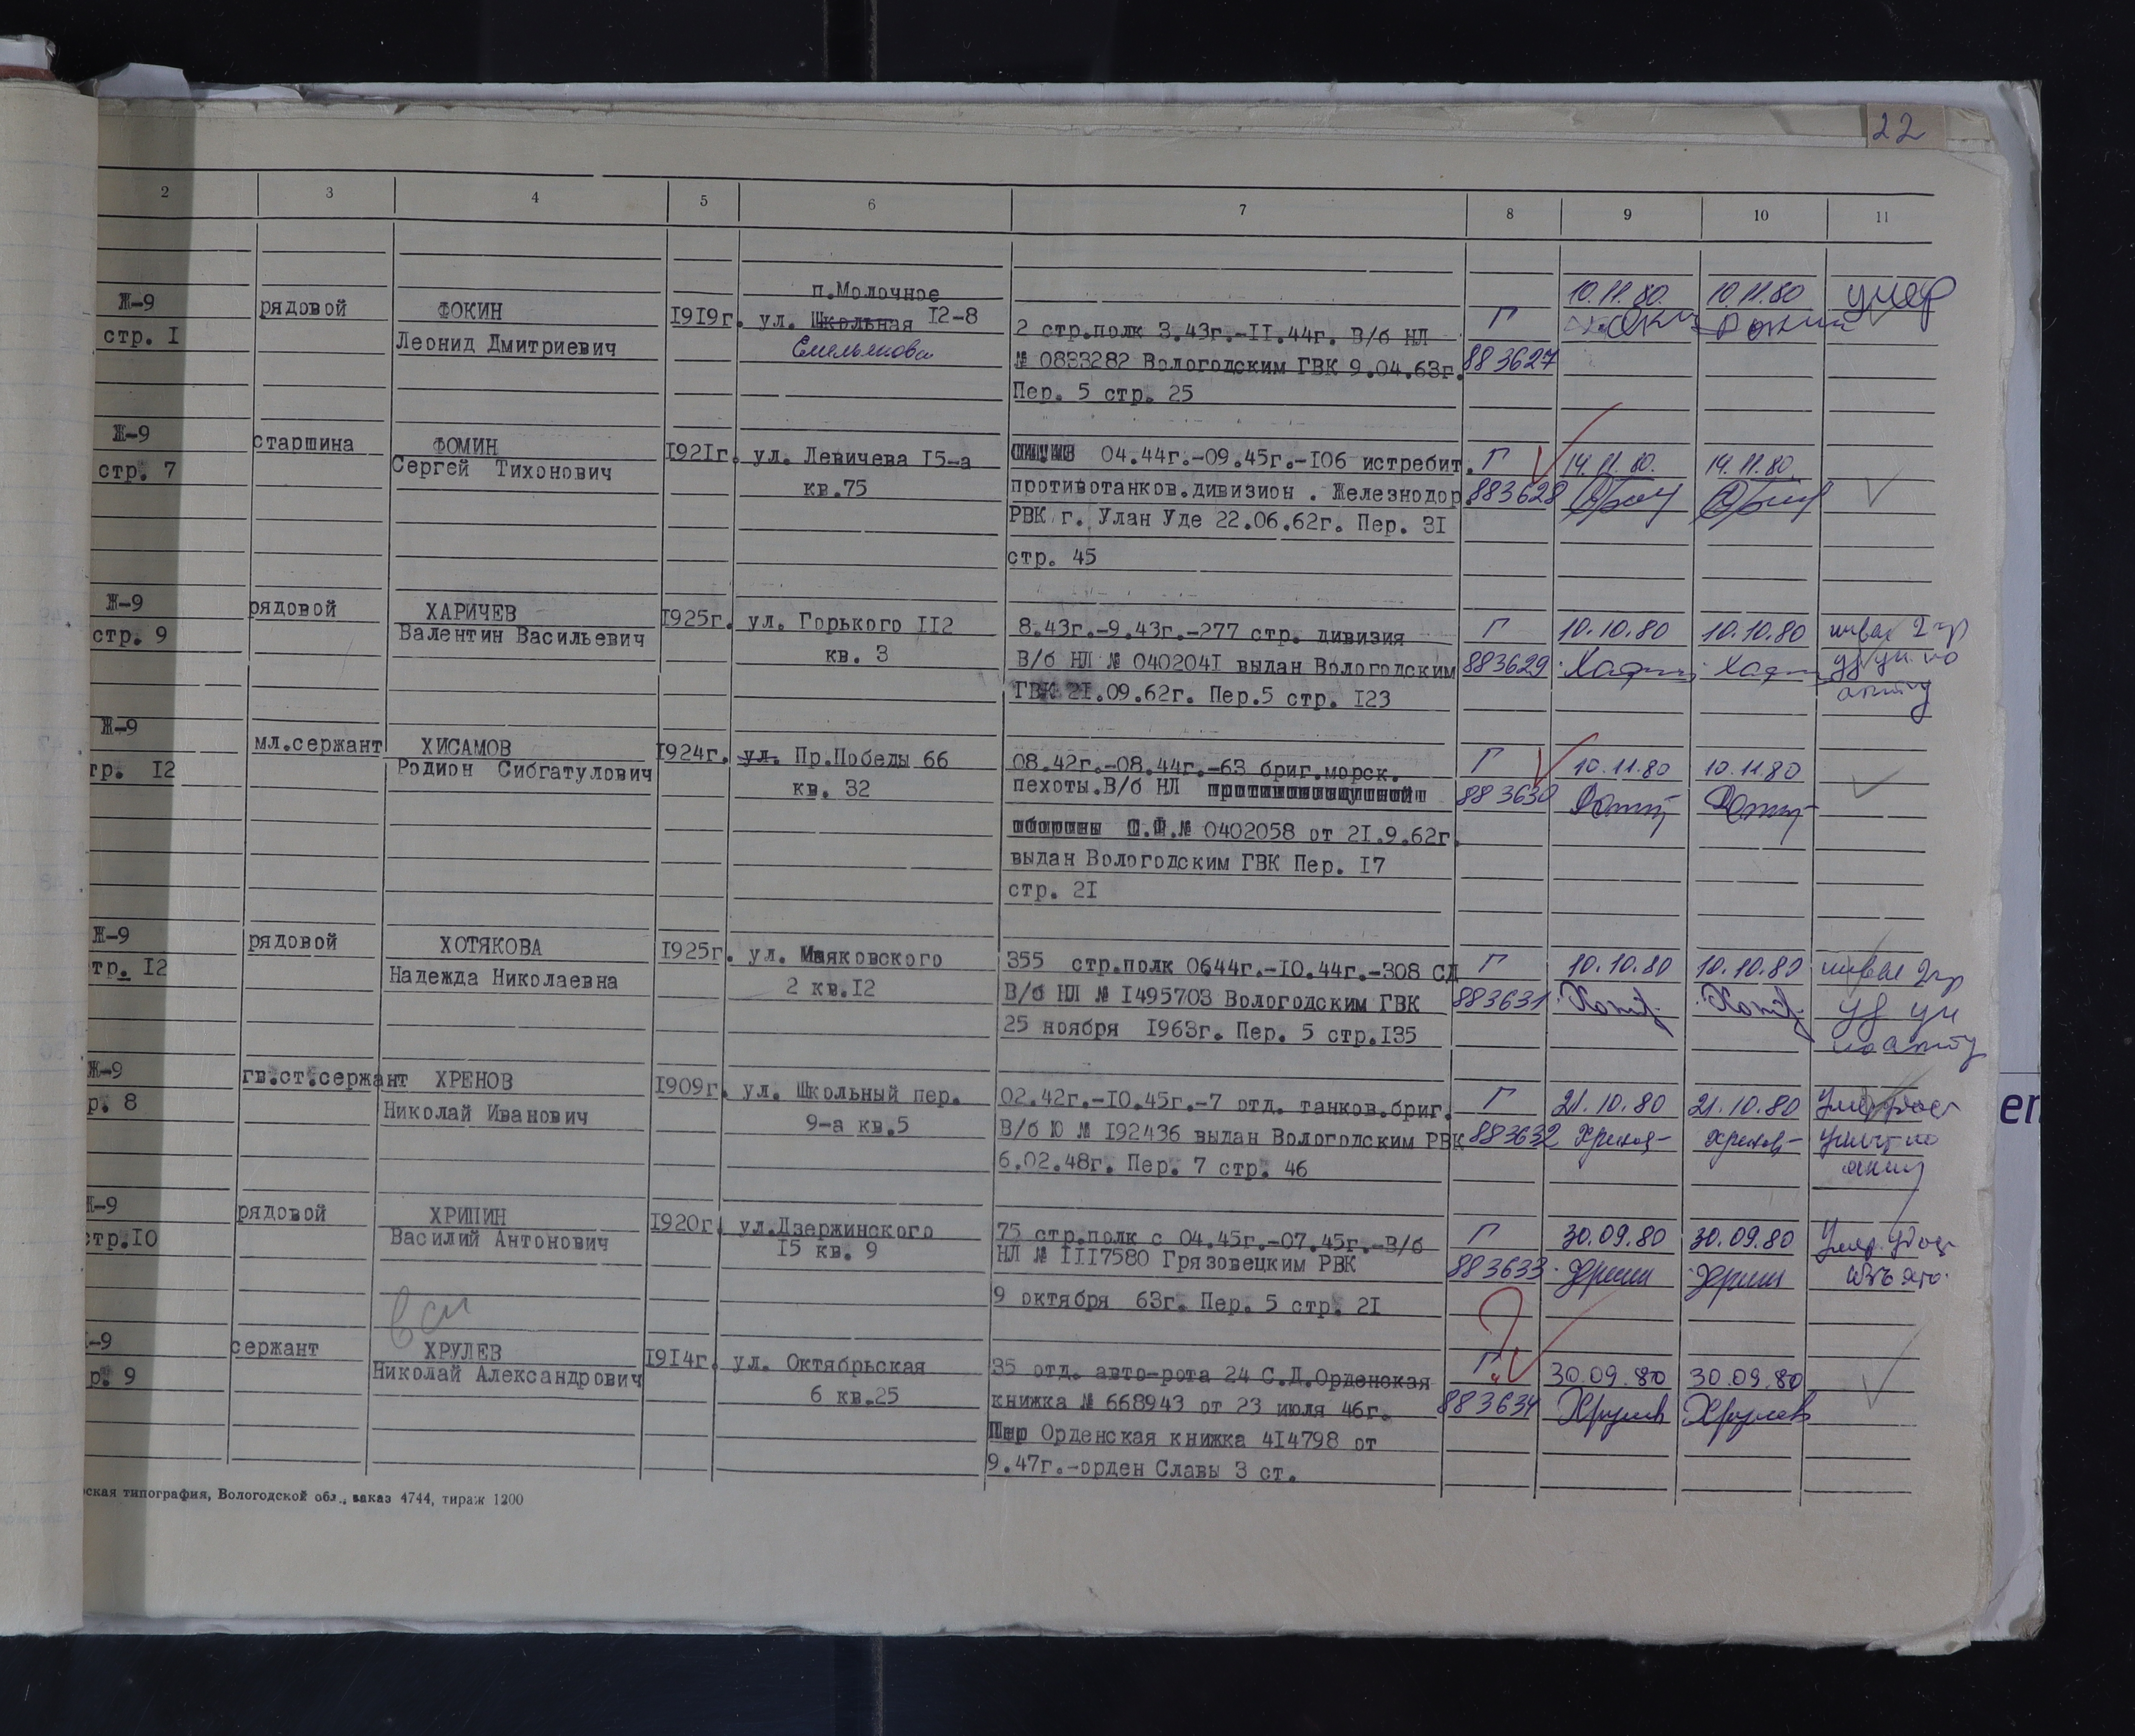 22
2 3 4 5 6 7 8 9 10 11
Ж-9 рядовой ФОКИН 1919г. п.Молочное
стр. I Леонид Дмитриевич ул. Школьная 12-8
Емельянова
2 стр.полк 3.43г.-II.44г. В/б НЛ
№ 0833282 Вологодским ГВК 9.04.63г.
Пер. 5 стр. 25
Г 10.11.80. 10.11.80 умер
883627
Ж-9 старшина ФОМИН 1921г. ул. Левичева 15-а
стр. 7 Сергей Тихонович кв.75
04.44г.-09.45г.-106 истребит.
противотанков.дивизион . Железнодор.
РВК г. Улан Уде 22.06.62г. Пер. 31
стр. 45
Г 14.11.80. 14.11.80.
883628
Ж-9 рядовой ХАРИЧЕВ 1925г. ул. Горького 112
стр. 9 Валентин Васильевич кв. 3
8.43г.-9.43г.-277 стр. дивизия
В/б НЛ № 0402041 выдан Вологодским
ГВК 21.09.62г. Пер.5 стр. 123
Г 10.10.80 10.10.80 инвал I гр
883629 уд ун. по
акту
Ж-9 мл.сержант ХИСАМОВ 1924г. ул. Пр.Победы 66
тр. 12 Родион Сибгатулович кв. 32
08.42г.-08.44г.-63 бриг.морск.
пехоты.В/б НЛ
№ 0402058 от 21.9.62г.
выдан Вологодским ГВК Пер. 17
стр. 21
Г 10.11.80 10.11.80
883630
Ж-9 рядовой ХОТЯКОВА 1925г. ул. Маяковского
тр. 12 Надежда Николаевна 2 кв.12
355 стр.полк 0644г.-10.44г.-308 СД
В/б НЛ № 1495703 Вологодским ГВК
25 ноября 1963г. Пер. 5 стр.135
Г 10.10.80 10.10.80 инвал 2гр
883631 уд ун
по акту
Ж-9 гв.ст.сержант ХРЕНОВ 1909г. ул. Школьный пер.
р. 8 Николай Иванович 9-а кв.5
02.42г.-10.45г.-7 отд. танков.бриг.
В/б Ю № 192436 выдан Вологодским РВК
6.02.48г. Пер. 7 стр. 46
Г 21.10.80 21.10.80 Умер
883632 Хренов Хренов по
Ж-9 рядовой ХРИПИН 1920г. ул.Дзержинского
стр.10 Василий Антонович 15 кв. 9
75 стр.полк с 04.45г.-07.45г.-В/б
НЛ № III7580 Грязовецким РВК
9 октября 63г. Пер. 5 стр. 21
Г 30.09.80 30.09.80 Умер.
883633
-9 сержант ХРУЛЕВ 1914г. ул. Октябрьская
р. 9 Николай Александрович 6 кв.25
35 отд. авто-рота 24 С.Д.Орденская
книжка № 668943 от 23 июля 46г.
Орденская книжка 414798 от
9.47г.-орден Славы 3 ст.
Г 30.09.80 30.09.80
883634 Хрулев Хрулев
ская типография, Вологодской обл., заказ 4744, тираж 1200